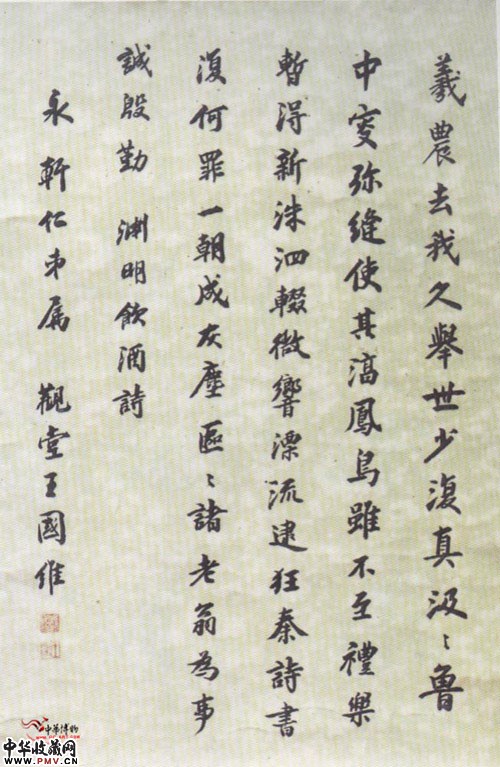 羲農去我久舉世少復真汲〻魯
中叟弥縫使其湻鳳鳥雖不至禮樂
暫得新洙泗輟微響漂流逮狂秦詩書
復何罪一朝成灰塵區〻諸老翁為事
誠殷勤 淵明飲酒詩
永軒仁弟属 觀堂王國維
中華博物
中华收藏网
WWW.PMV.CN